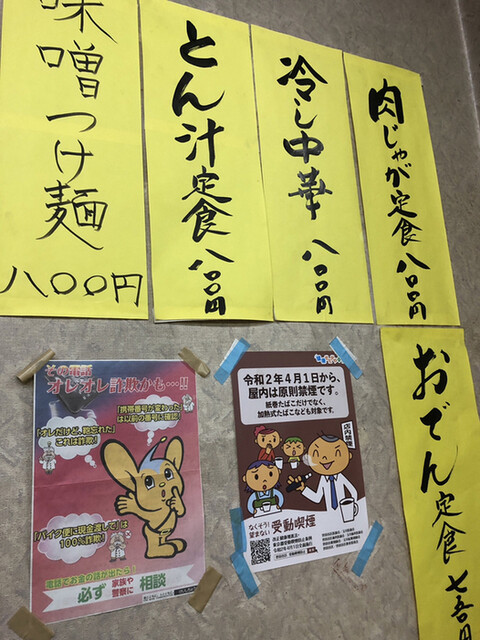 味噌つけ麺
八〇〇円
とん汁定食 八〇〇円
冷し中華 八〇〇円
肉じゃが定食 八〇〇円
おでん定食 七五〇円
その電話
オレオレ詐欺かも…!!
「携帯番号が変わった」
は以前の番号に確認!
「オレだけど、鞄忘れた」
これは詐欺!
「バイク便に現金渡して」は
100%詐欺!
電話でお金の話が出たら!
必ず 家族や
警察に 相談
令和2年4月1日から、
屋内は原則禁煙です。
紙巻たばこだけでなく、
加熱式たばこなども対象です。
店内禁煙
なくそう!
望まない 受動喫煙